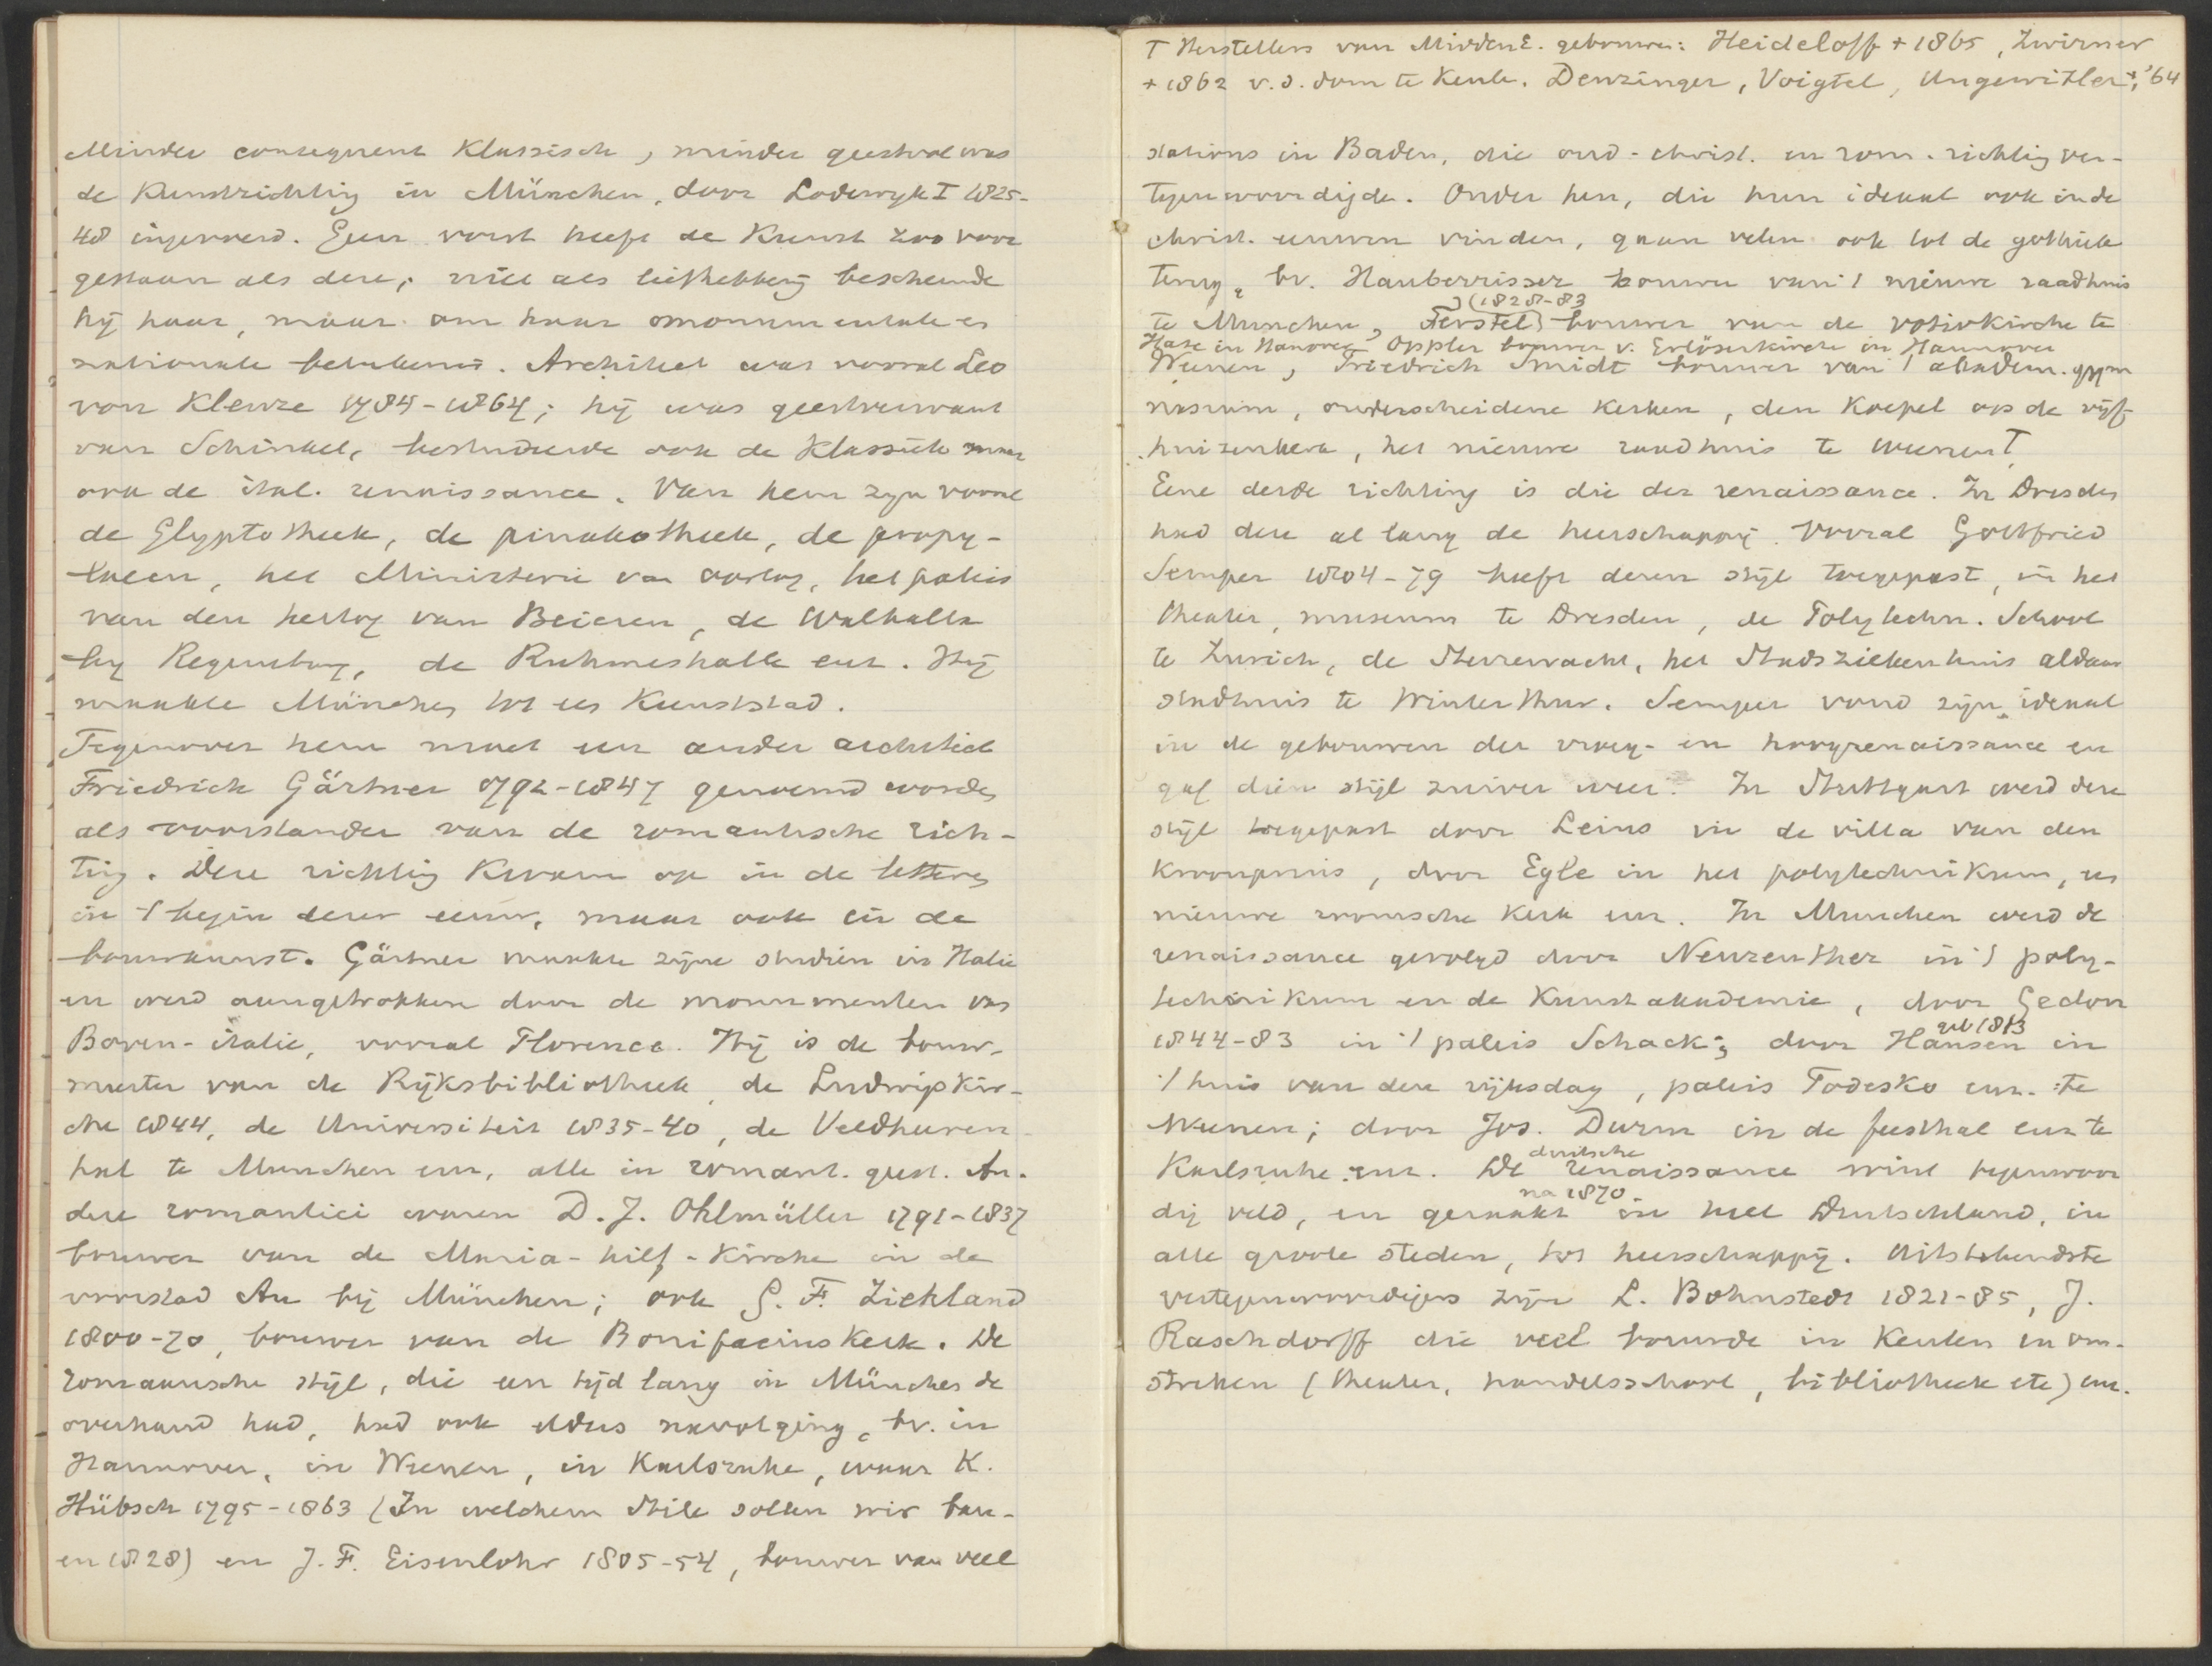 Minder consequent Klassisch, minder geestvol was
de Kunstrichting in München, door Lodewyk I 1825-
48 ingevoerd. Geen vorst heeft de Kunst zoo voor
gestaan als deze; niet als liefhebberij beschermde
hij haar, maar om haar monumentale en
nationale beteekenis. Architect was vooral Leo
von Klenze 1784-1864; hij was geestverwant
van Schinkel, bestudeerde ook de Klassiek maar
ook de ital. renaissance. Van hem zijn vooral
de Glyptotheek, de pinakotheek, de propy-
laeen, het Ministerie van oorlog, het paleis
van den hertog van Beieren, de Walhalla
bij Regensburg, de Ruhmeshalle enz. Hij
maakte München tot een Kunststad.
Tegenover hem moet een ander architect
Friedrich Gärtner 1792-1847 genoemd worden
als voorstander van de romantische rich-
ting. Deze richting Kwam op in de letteren
in 't begin dezer eeuw, maar ook in de
bouwkunst. Gärtner maakte zijne studiën in Italie
en werd aangetrokken door de monumenten van
Boven-italie, vooral Florence. Hij is de bouw-
meester van de Rijksbibliotheek, de Ludwigskir-
che 1844, de Universiteit 1835-40, de Veldheeren-
hal te Munchen enz, alle in romant. geest. An-
dere romantici waren D. J. Ohlmüller 1791-1837
bouwer van de Maria-hilf-Kirche in de
voorstad Au bij München; ook G. F. Ziehland
1800-70, bouwer van de Bonifacius Kerk. De
romantische stijl, die een tijd lang in München de
overhand had, had ook elders navolging, bv. in
Hannover, in Weenen, in Karlsruhe, waar K.
Hübsch 1795-1863 (In welchem Stile sollen wir bau-
en 1828) en J. F. Eisenlohr 1805-54, bouwer van veel
T Herstellers van MiddenE. gebouwen: Heideloff + 1865, Zwirner
+ 1862 v. d. dom te Keule. Denzinger, Voigtel, Ungewitter + '64
stations in Baden, die oud-christ. en rom. richting ver-
tegenwoordigde. Onder hen, die hun ideaal ook in de
christ. eeuwen vinden, gaan velen ook tot de gothiek
terug, bv. Hauberrisser bouwer van 't nieuwe raadhuis
(1828-83
te Munchen, Ferstel bouwer van de votivkirche te
Hase in Hanover Oppler bouwer v. Erlöserkirche in Hannover
Weenen, Friedrich Smidt bouwer van 't akadem. gym
nasium, onderscheidene Kerken, den Koepel op de vijf-
huizenkerk, het nieuwe raadhuis te Weenen T
Eene derde richting is die der renaissance. In Dresden
had deze al lang de heerschappij. Vooral Gottfried
Semper 1804-79 heeft dezen stijl toegepast, in het
theater, museum te Dresden, de Polytechn. School
te Zurich, de Sterrewacht, het Stadsziekenhuis aldaar
stadhuis te Winterthur. Semper vond zijn ideaal
in de gebouwen der vroeg- en hoogrenaissance en
gaf dien stijl zuiver weer. In Stuttgart werd deze
stijl toegepast door Leins in de villa van den
Kroonprins, door Egle in het polytechnikum, een
nieuwe roomsche Kerk enz. In Munchen werd de
renaissance gevolgd door Neureuther in 't poly-
technikum en de Kunstakademie, door Gedon
geb 1813
1844-83 in 't paleis Schack; door Hansen in
't huis van den rijksdag, paleis Todesko enz. te
Weenen; door Jos. Durm in de feesthal enz te
duitsche
Karlsruhe enz. De renaissance wint tegenwoor
na 1870
dig veld, en geraakt in heel Duitschland, in
alle groote steden, tot heerschappij. Uitstekendste
vertegenwoordigers zijn L. Bohnstedt 1821-85, J.
Raschdorff die veel bouwde in Keulen en om-
streken (theater, handelsschool, bibliotheek etc) enz.